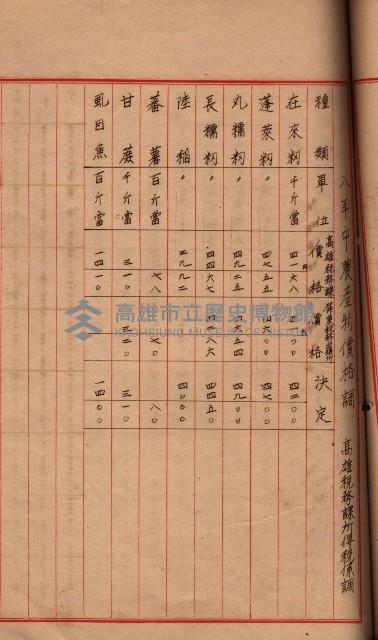 八年中農產物價格調
高雄稅務課所得稅係調
種類 單位 高雄稅務課 價格 屏東稅務 價格 決定
在來籾 千斤當 四一六八 四〇〇 四二〇〇
蓬萊籾 〃 四七五五 四六〇〇 四七〇〇
丸糯籾 〃 四九二五 五四 四九〇〇
長糯籾 〃 四四六七 八六 四四五〇
陸稻 〃 三九九二 四〇〇〇
蕃薯 百斤當 七八 七〇 八〇
甘蔗 千斤當 三一〇 三二〇 三一〇
虱目魚 百斤當 一四一〇 一四〇〇
高雄市立歷史博物館
KAOHSIUNG MUSEUM OF HISTORY